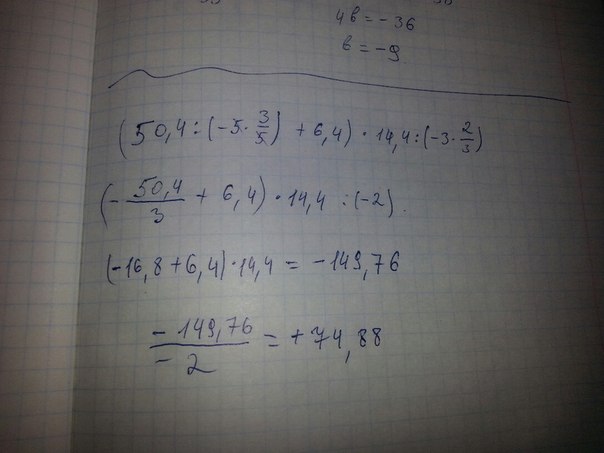 4b = -36
b = -9
(50,4 : (-5 · 3/5) + 6,4) · 14,4 : (-3 · 2/3)
(- 50,4/3 + 6,4) · 14,4 : (-2).
(-16,8 + 6,4) · 14,4 = -149,76
-149,76/-2 = +74,88